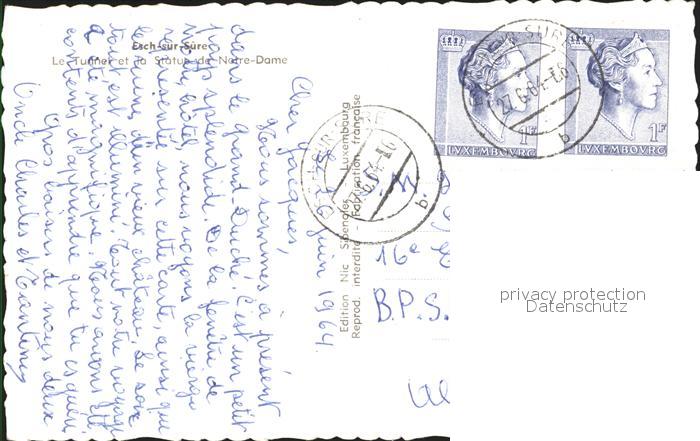 Esch-sur-Sûre
Le Tunnel et la Statue de Notre-Dame
juin 1964.
Cher Jacques,
Nous sommes à présent
dans le grand-Duché. C'est un petit
trou splendide. De la fenêtre de
notre hôtel nous voyons la vierge
représentée sur cette carte, ainsi que
les ruines d'un vieux château. Le soir
tout est illuminé. Tout notre voyage
a été magnifique. Nous avons été
contents d'apprendre que tu es guéri.
Gros baisers de nous deux
Oncle Charles et Tantine
Edition Nic Sibenaler - Luxembourg
Reprod. interdite - Fabrication française
ESCH-SUR-SURE
27.6.64
b
1F 1F
LVXEMBOVRG LVXEMBOVRG
M.
16e
B.P.S.
privacy protection
Datenschutz